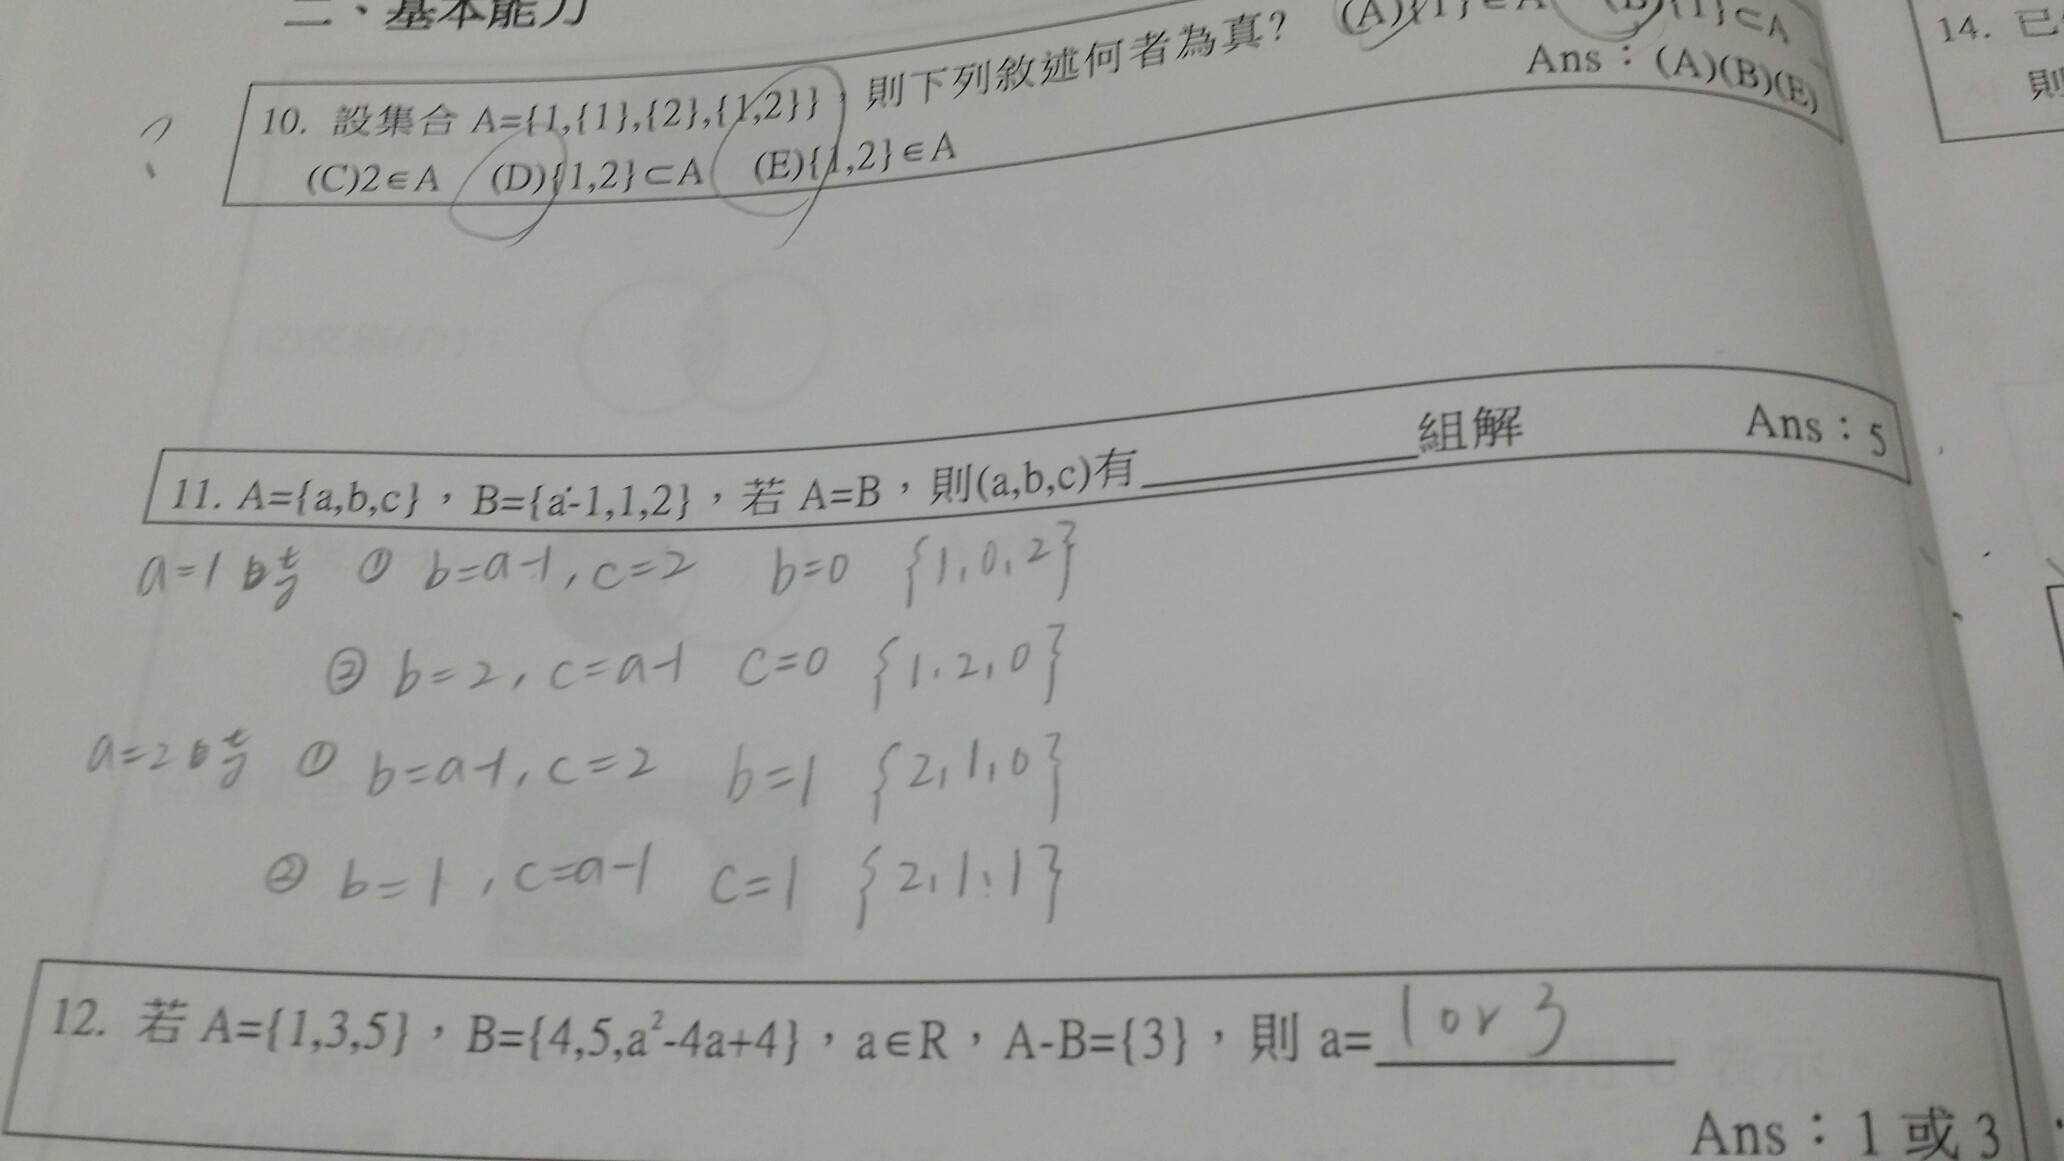 二、基本能力
10. 設集合 A={1,{1},{2},{1,2}}，則下列敘述何者為真? (A){1}∈A (B){1}⊂A
(C)2∈A (D){1,2}⊂A (E){1,2}∈A
Ans：(A)(B)(E)
?
11. A={a,b,c}，B={a-1,1,2}，若 A=B，則(a,b,c)有 組解 Ans：5
a=1時 ① b=a-1, c=2 b=0 {1,0,2}
② b=2, c=a-1 c=0 {1,2,0}
a=2時 ① b=a-1, c=2 b=1 {2,1,0}
② b=1, c=a-1 c=1 {2,1,1}
12. 若 A={1,3,5}，B={4,5,a²-4a+4}，a∈R，A-B={3}，則 a= 1 or 3
Ans：1 或 3
14. 已
則